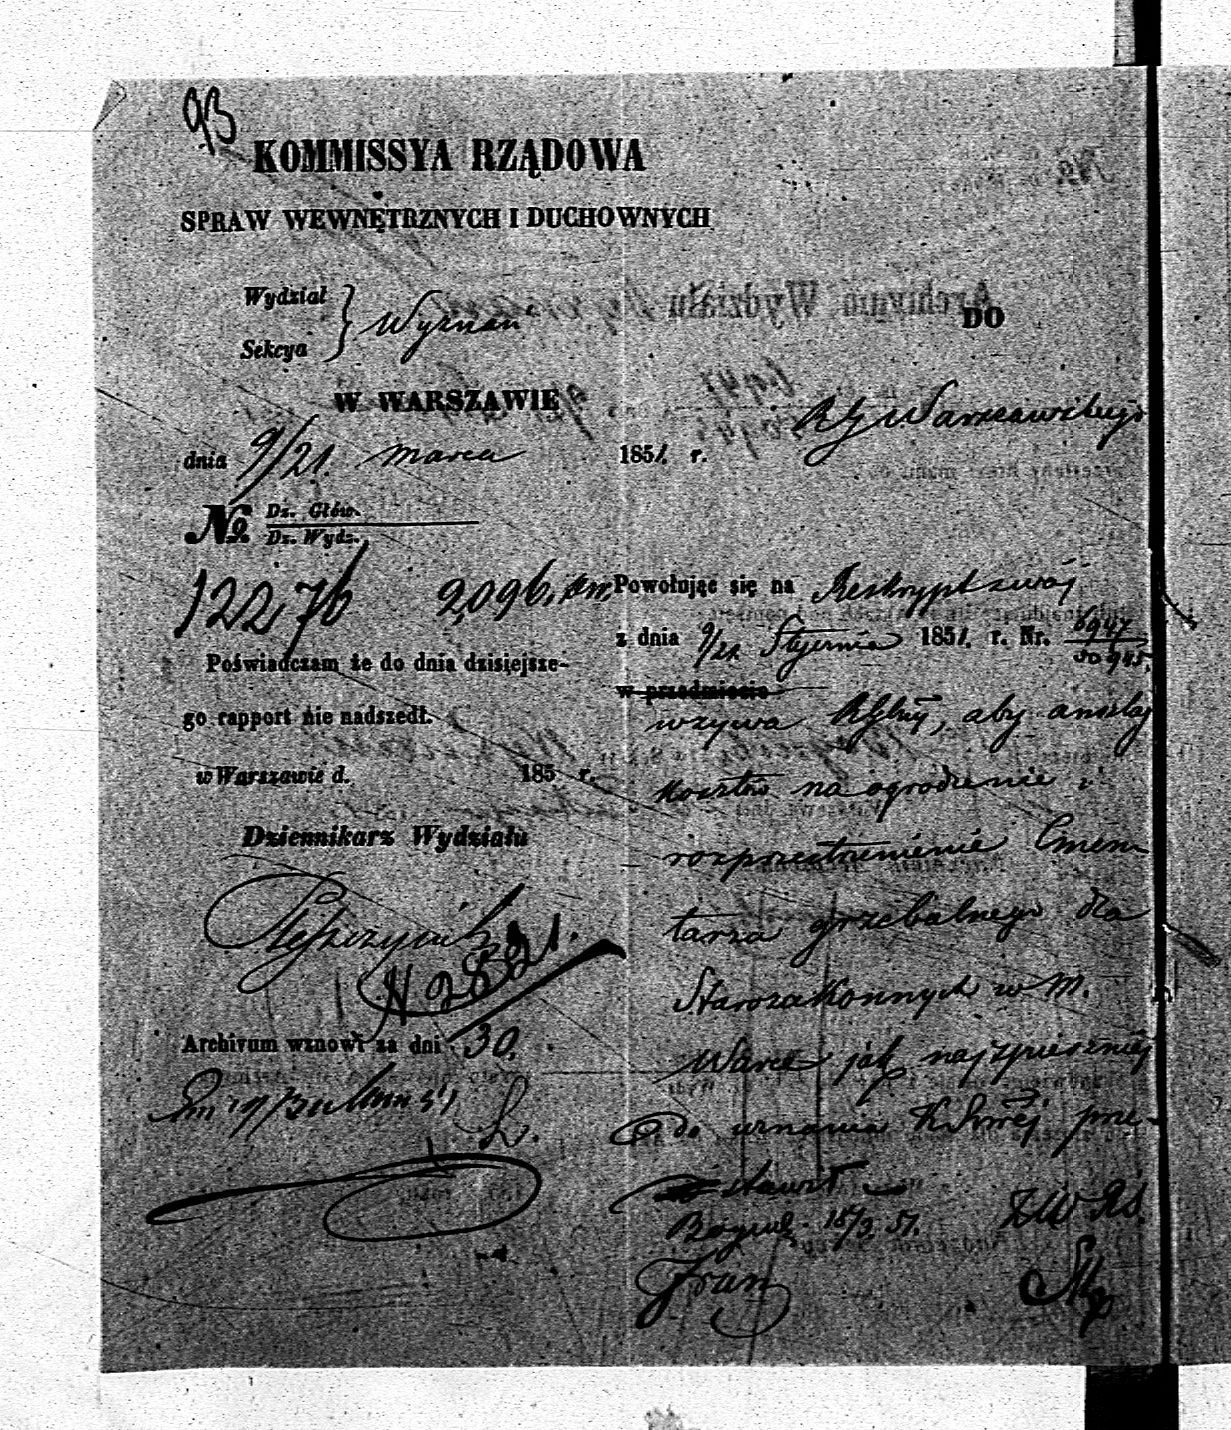 93
KOMMISSYA RZĄDOWA
SPRAW WEWNĘTRZNYCH I DUCHOWNYCH
Wydział
Sekcya
Wyznań
W WARSZAWIE
dnia 9/21. Marca 1851. r.
№ Dz. Głów.
Dz. Wydz.
12276 2096.
Poświadczam że do dnia dzisiejsze-
go rapport nie nadszedł.
w Warszawie d. 185 r.
Dziennikarz Wydziału
N 2821.
Archivum wznowi za dni 30.
DO
RG Warszawskiego
Powołując się na Reskrypt swój
z dnia 9/21 Stycznia 1851. r. Nr. 6947
w przedmiocie
wzywa RGlny, aby anszlag
kosztów na ogrodzenie i
rozprzestrzenienie Cmen
tarza grzebalnego dla
Starozakonnych w M.
Warce jak najspieszniej
do uznania KRswej prze-
stawił